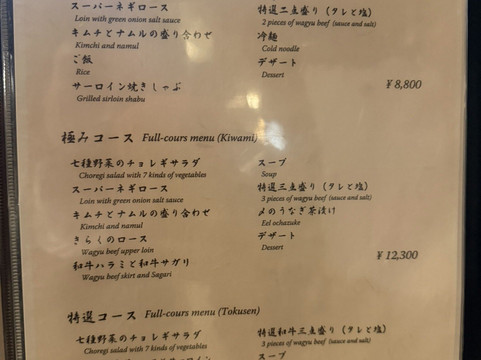 スーパーネギロース
Loin with green onion salt sauce
キムチとナムルの盛り合わせ
Kimchi and namul
ご飯
Rice
サーロイン焼きしゃぶ
Grilled sirloin shabu
特選二点盛り（タレと塩）
2 pieces of wagyu beef (sauce and salt)
冷麺
Cold noodle
デザート
Dessert
¥8,800
極みコース Full-cours menu (Kiwami)
七種野菜のチョレギサラダ
Choregi salad with 7 kinds of vegetables
スーパーネギロース
Loin with green onion salt sauce
キムチとナムルの盛り合わせ
Kimchi and namul
きらくのロース
Wagyu beef upper loin
和牛ハラミと和牛サガリ
Wagyu beef skirt and Sagari
スープ
Soup
特選三点盛り（タレと塩）
3 pieces of wagyu beef (sauce and salt)
〆のうなぎ茶漬け
Eel ochazuke
デザート
Dessert
¥12,300
特選コース Full-cours menu (Tokusen)
七種野菜のチョレギサラダ
Choregi salad with 7 kinds of vegetables
特選和牛三点盛り（タレと塩）
3 pieces of wagyu beef (sauce and salt)
スープ